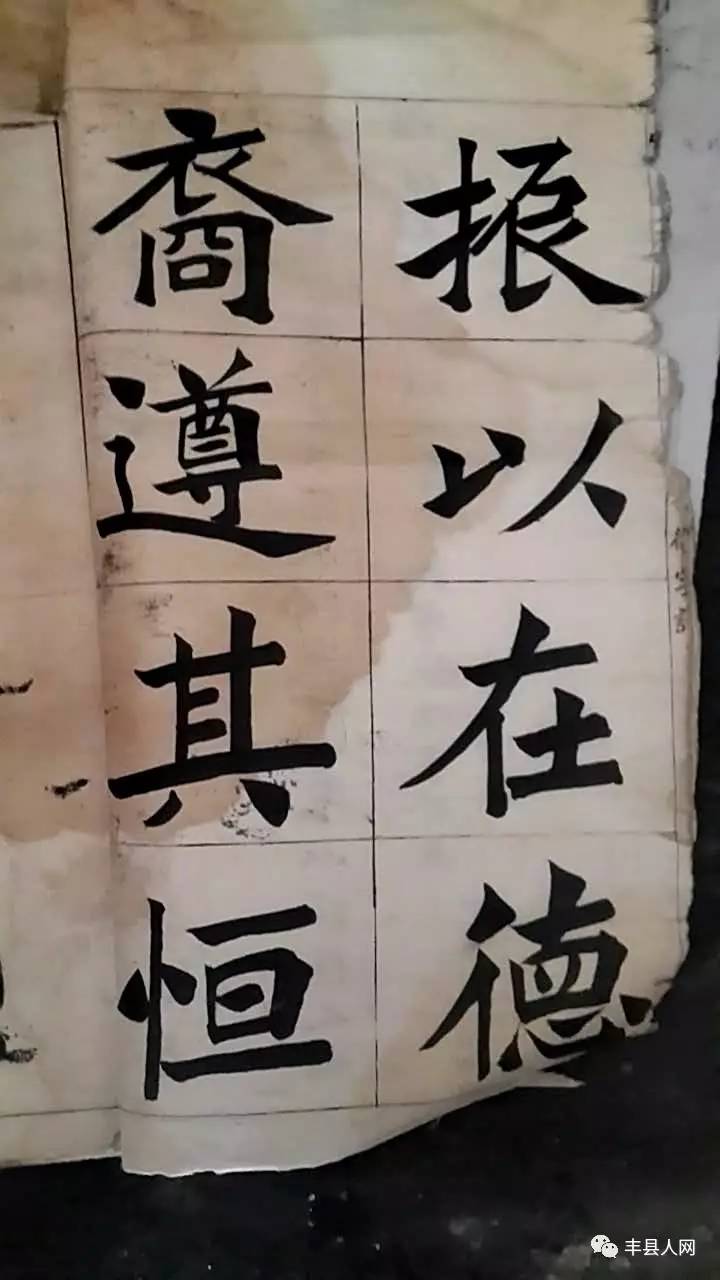 振以在德
裔遵其恒
丰县人网